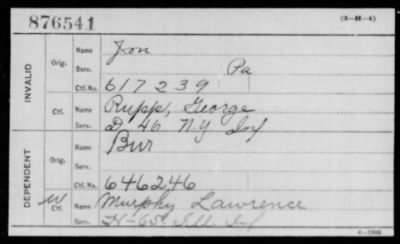 876541 (3-H-4)
INVALID
Orig.
Name Fon
Serv. Pa
Ctf. No. 617239
Ctf.
Name Rupp, George
Serv. D 46 N.Y Inf
DEPENDENT
Orig.
Name Bur
Serv.
Ctf. No. 646246
W Ctf.
Name Murphy Lawrence
Serv. H-65 Ill. Inf